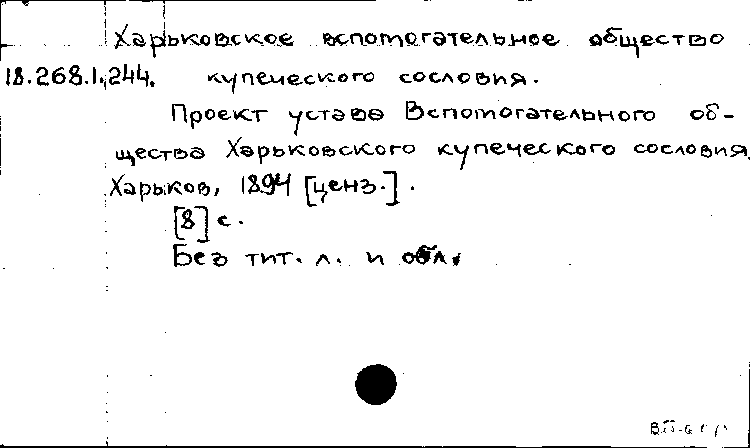 Харьковское вспомогательное общество
18.268.1.244. купеческого сословия.
Проект устава Вспомогательного об-
щества Харьковского купеческого сословия
Харьков, 1894 [ценз.].
[8] с.
Без тит. л. и обл.